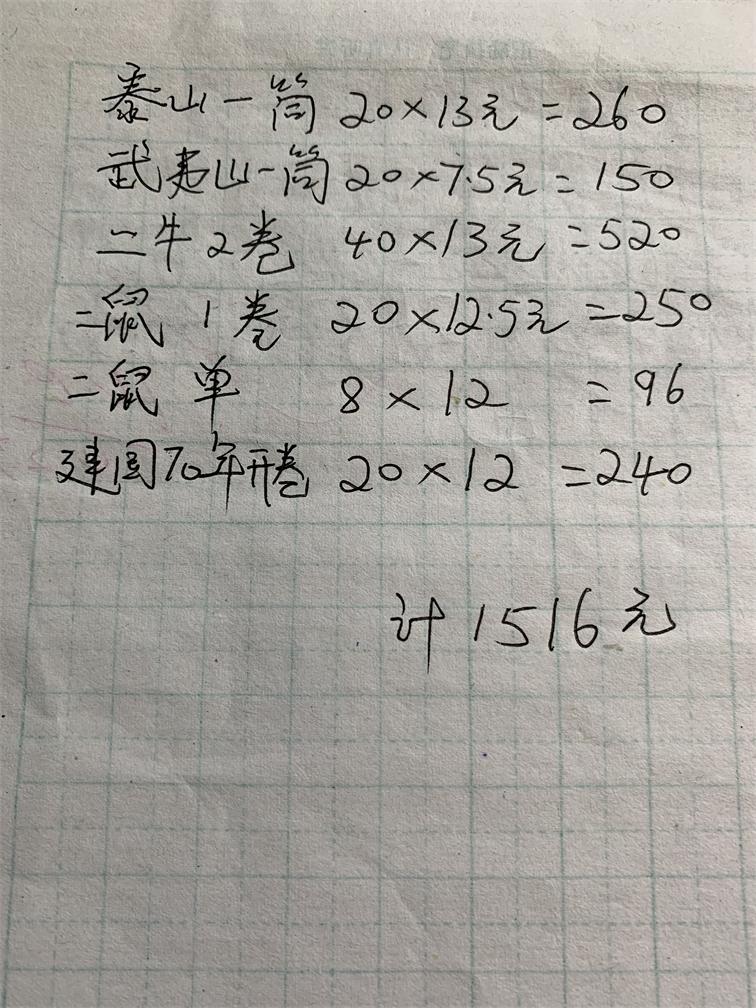 泰山一筒 20×13元=260
武夷山一筒 20×7.5元=150
二牛2卷 40×13元=520
二鼠1卷 20×12.5元=250
二鼠 单 8×12 =96
建国70年开卷 20×12 =240
计1516元